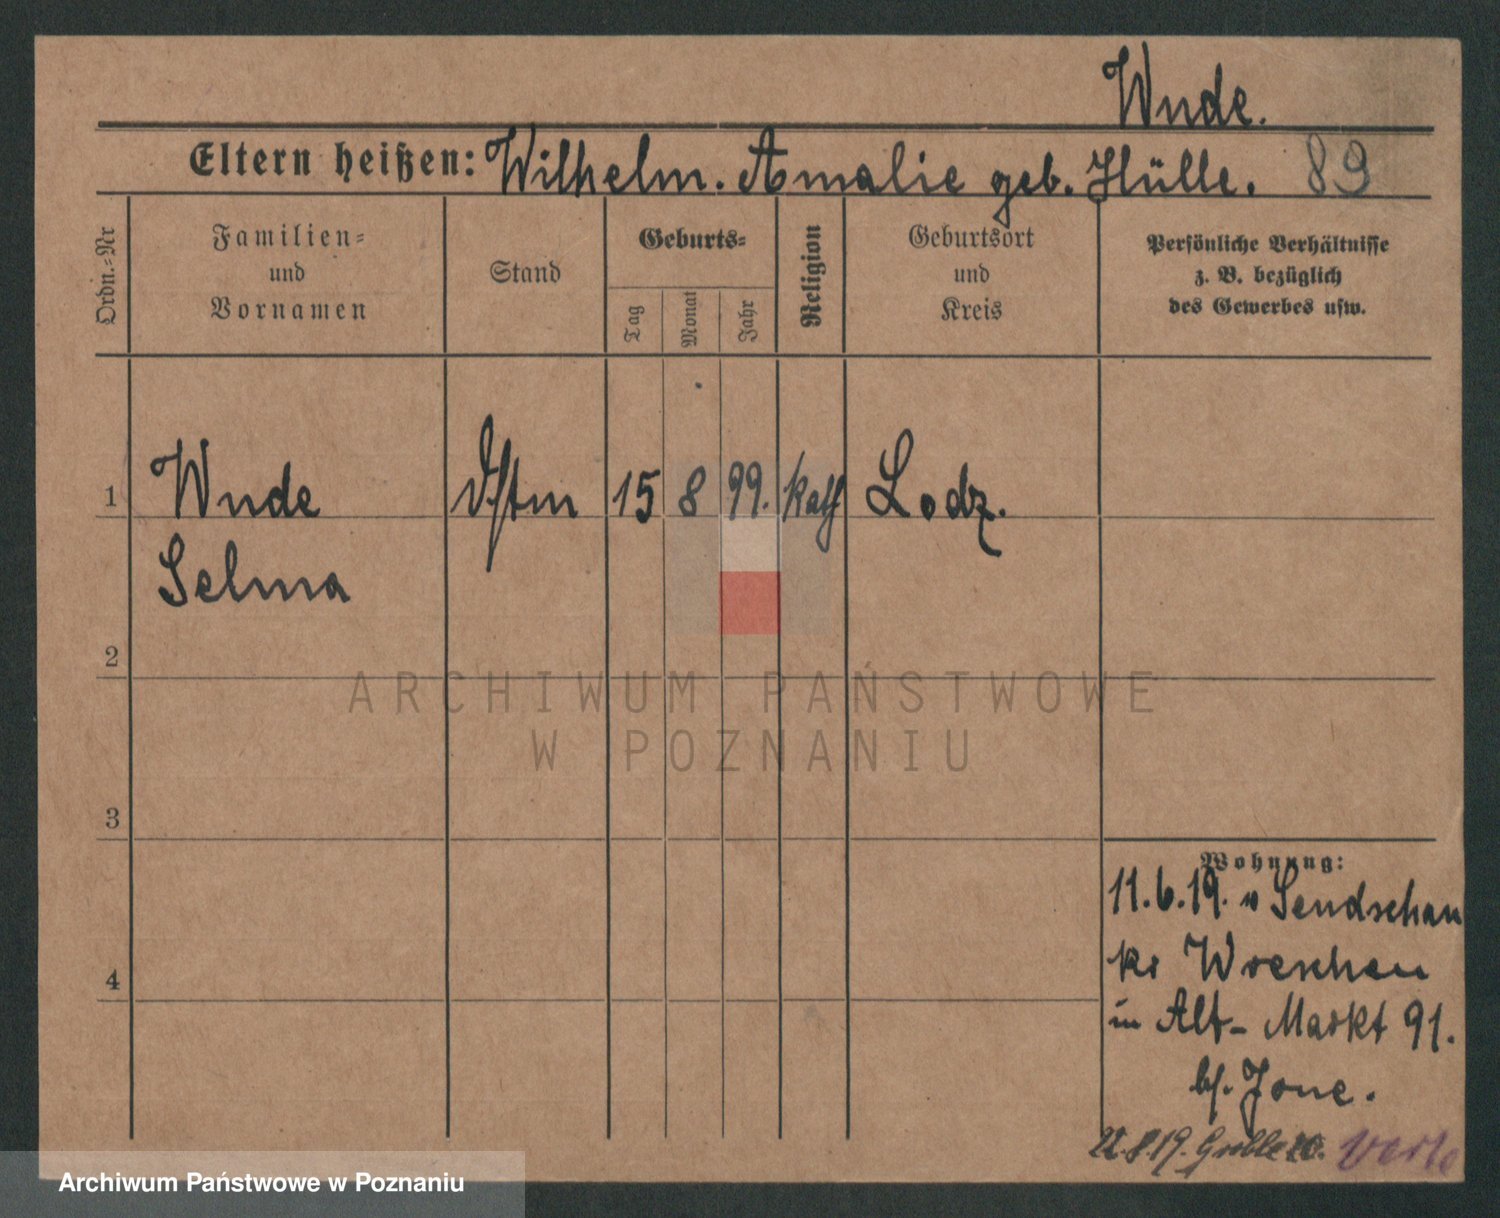 Wude.
Eltern heißen: Wilhelm. Amalie geb. Hülle. 89
Ordn.=Nr
Familien=
und
Vornamen
Stand
Geburts=
Tag
Monat
Jahr
Religion
Geburtsort
und
Kreis
Persönliche Verhältnisse
z. B. bezüglich
des Gewerbes usw.
1 Wude 15 8 99. kath Lodz.
Selma
2
3
4
Wohnung:
11.6.19. v Sendschau
kr Wreschen
in Alt- Markt 91.
bf.
22.8.19.
verte
ARCHIWUM PAŃSTWOWE
W POZNANIU
Archiwum Państwowe w Poznaniu